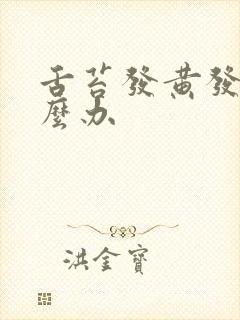 舌苔發黃發
麼办
洪金寶